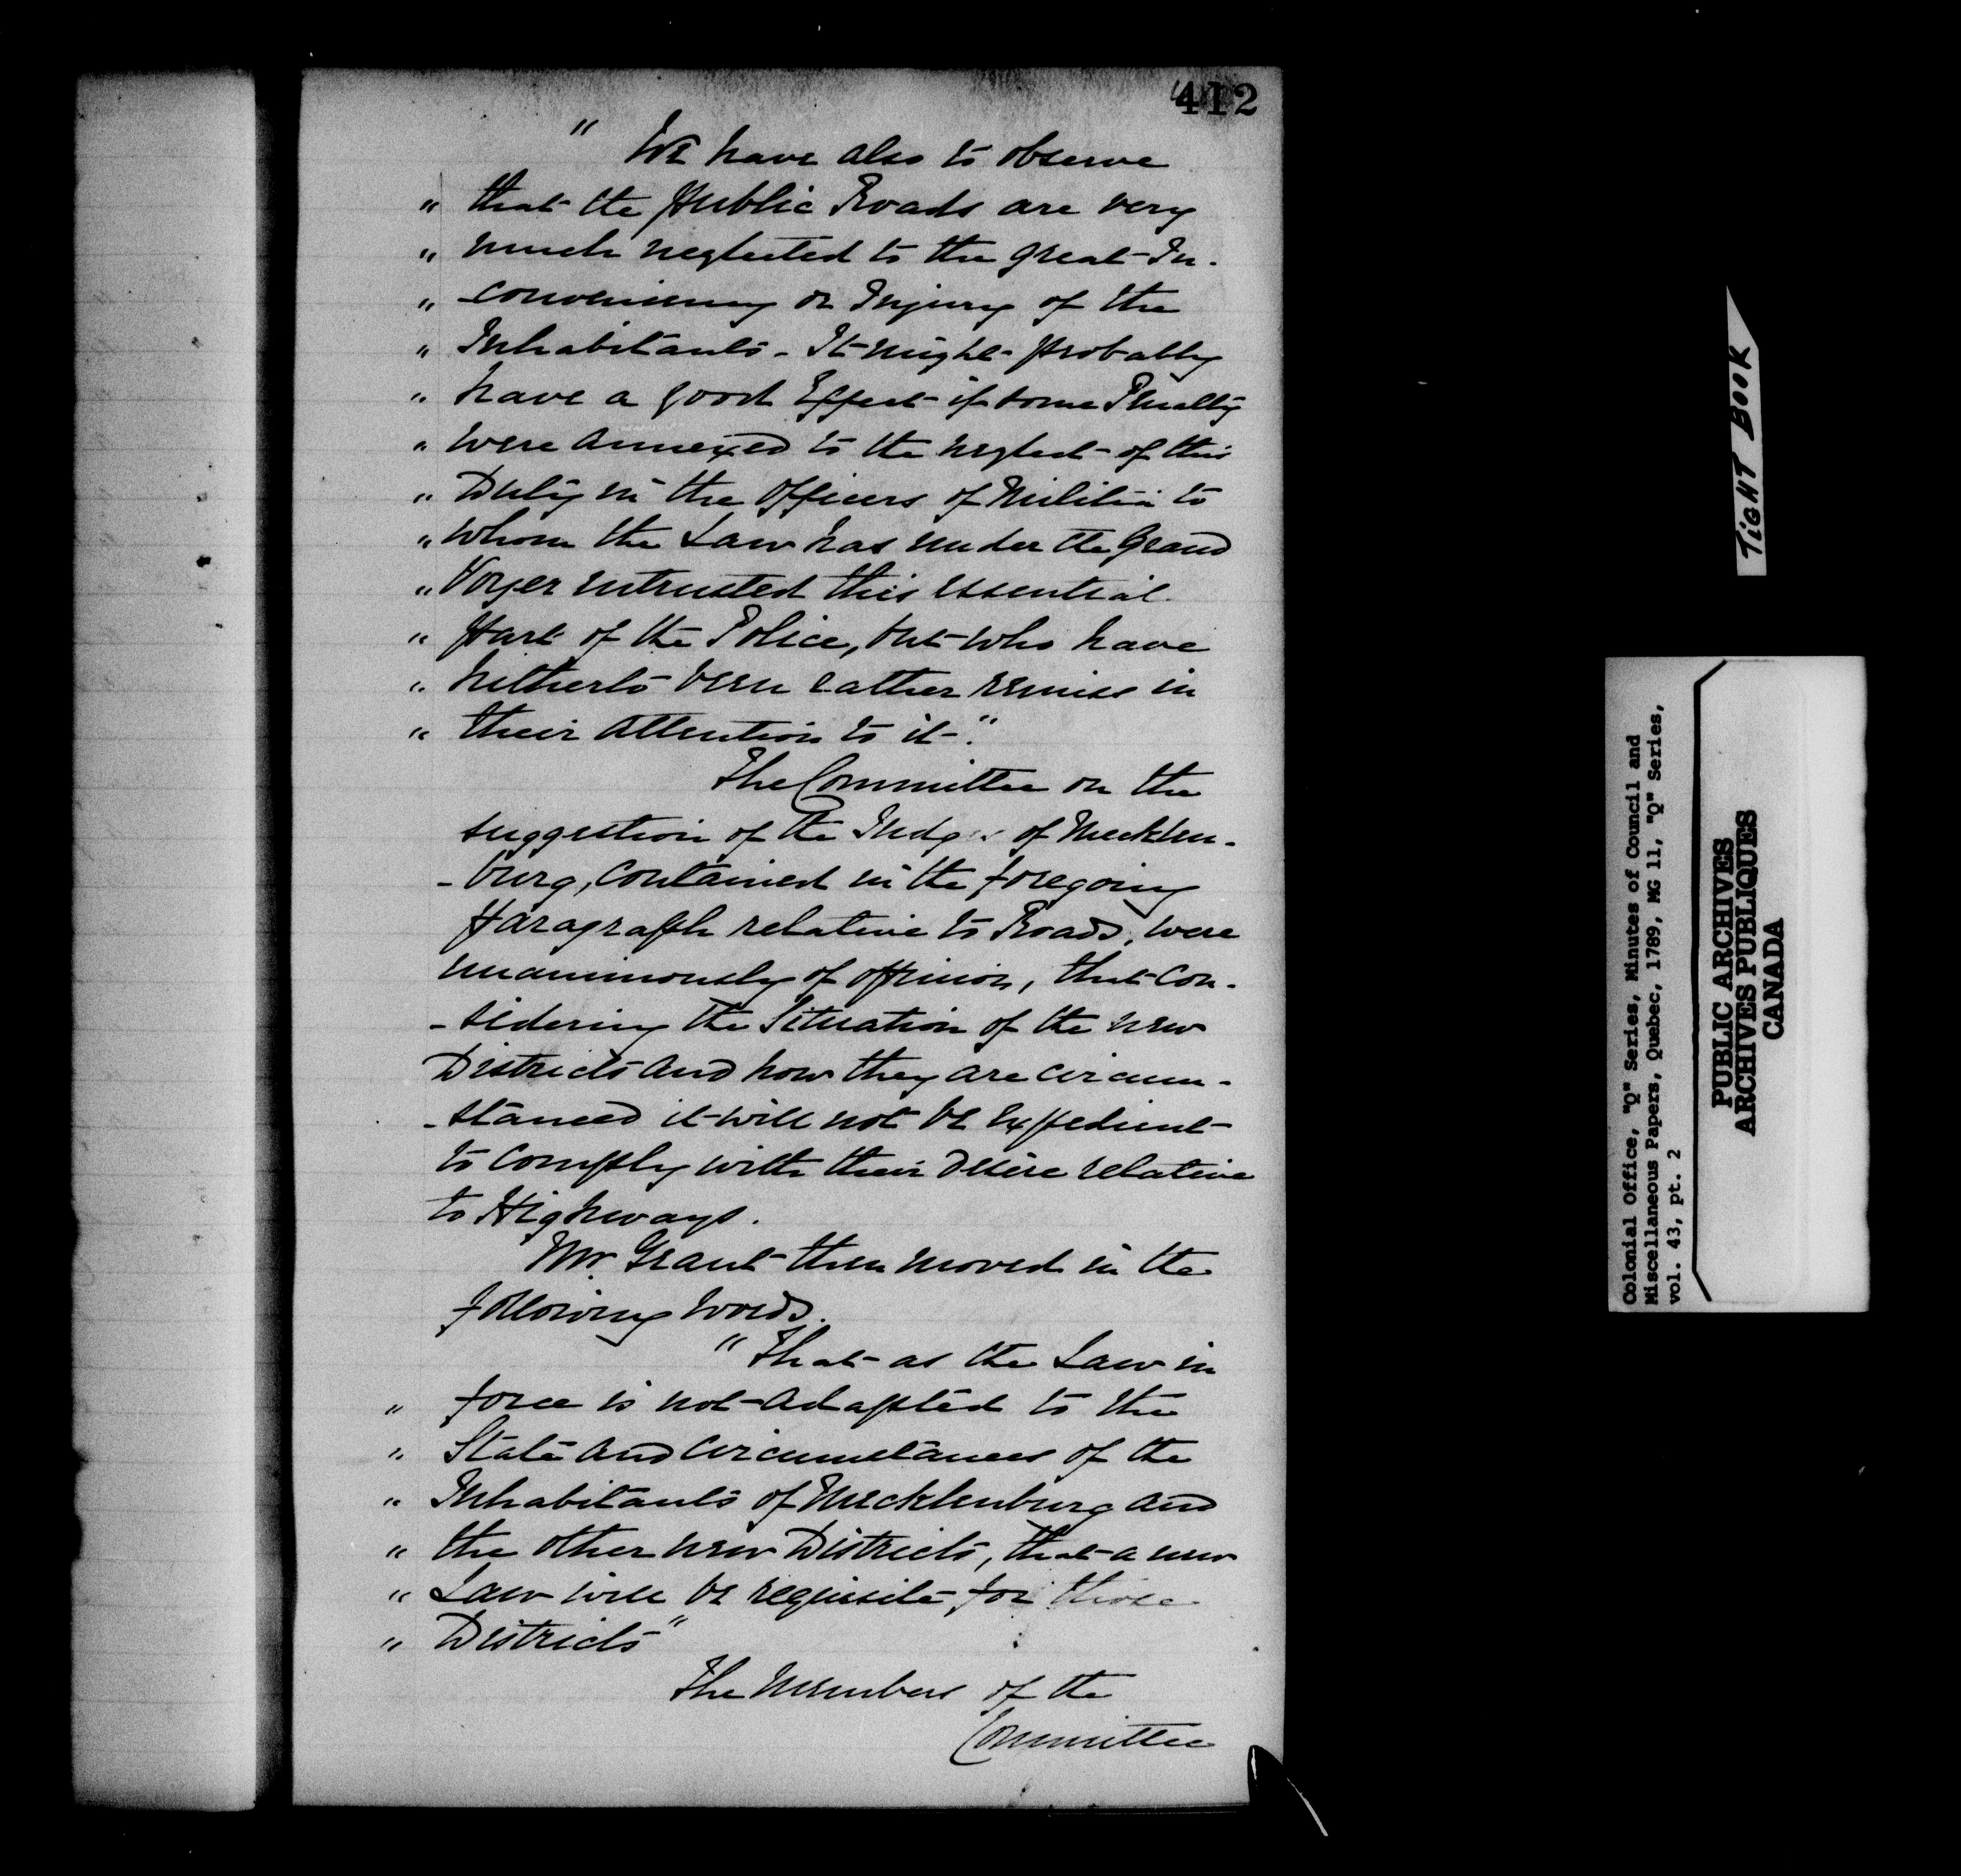 412
" We have also to observe
" that the public Roads are very
" much neglected to the great In-
" -conveniency or Injury of the
" Inhabitants - It might probably
" have a good Effect if some Penalty
" were annexed to the neglect of this
" Duty in the Officers of Militia to
" whom the Law has under the Grand
" Voyer entrusted this essential
" part of the Police, but who have
" hitherto been rather remiss in
" their attention to it."
The Committee on the
suggestion of the Judges of Mecklen-
-burg, contained in the foregoing
paragraph relative to Roads, were
unanimously of opinion, that con-
-sidering the Situation of the new
Districts and how they are circum-
-stanced it will not be expedient
to comply with their desire relative
to Highways.
Mr. Grant then moved in the
following words.
" That as the Law in
" force is not adapted to the
" State and circumstances of the
" Inhabitants of Mecklenburg and
" the other new Districts, that a new
" Law will be requisite for those
" Districts"
The Members of the
Committee
TIGHT BOOK
Colonial Office, "Q" Series, Minutes of Council and
Miscellaneous Papers, Quebec, 1789, MG 11, "Q" Series,
vol. 43, pt. 2
PUBLIC ARCHIVES
ARCHIVES PUBLIQUES
CANADA